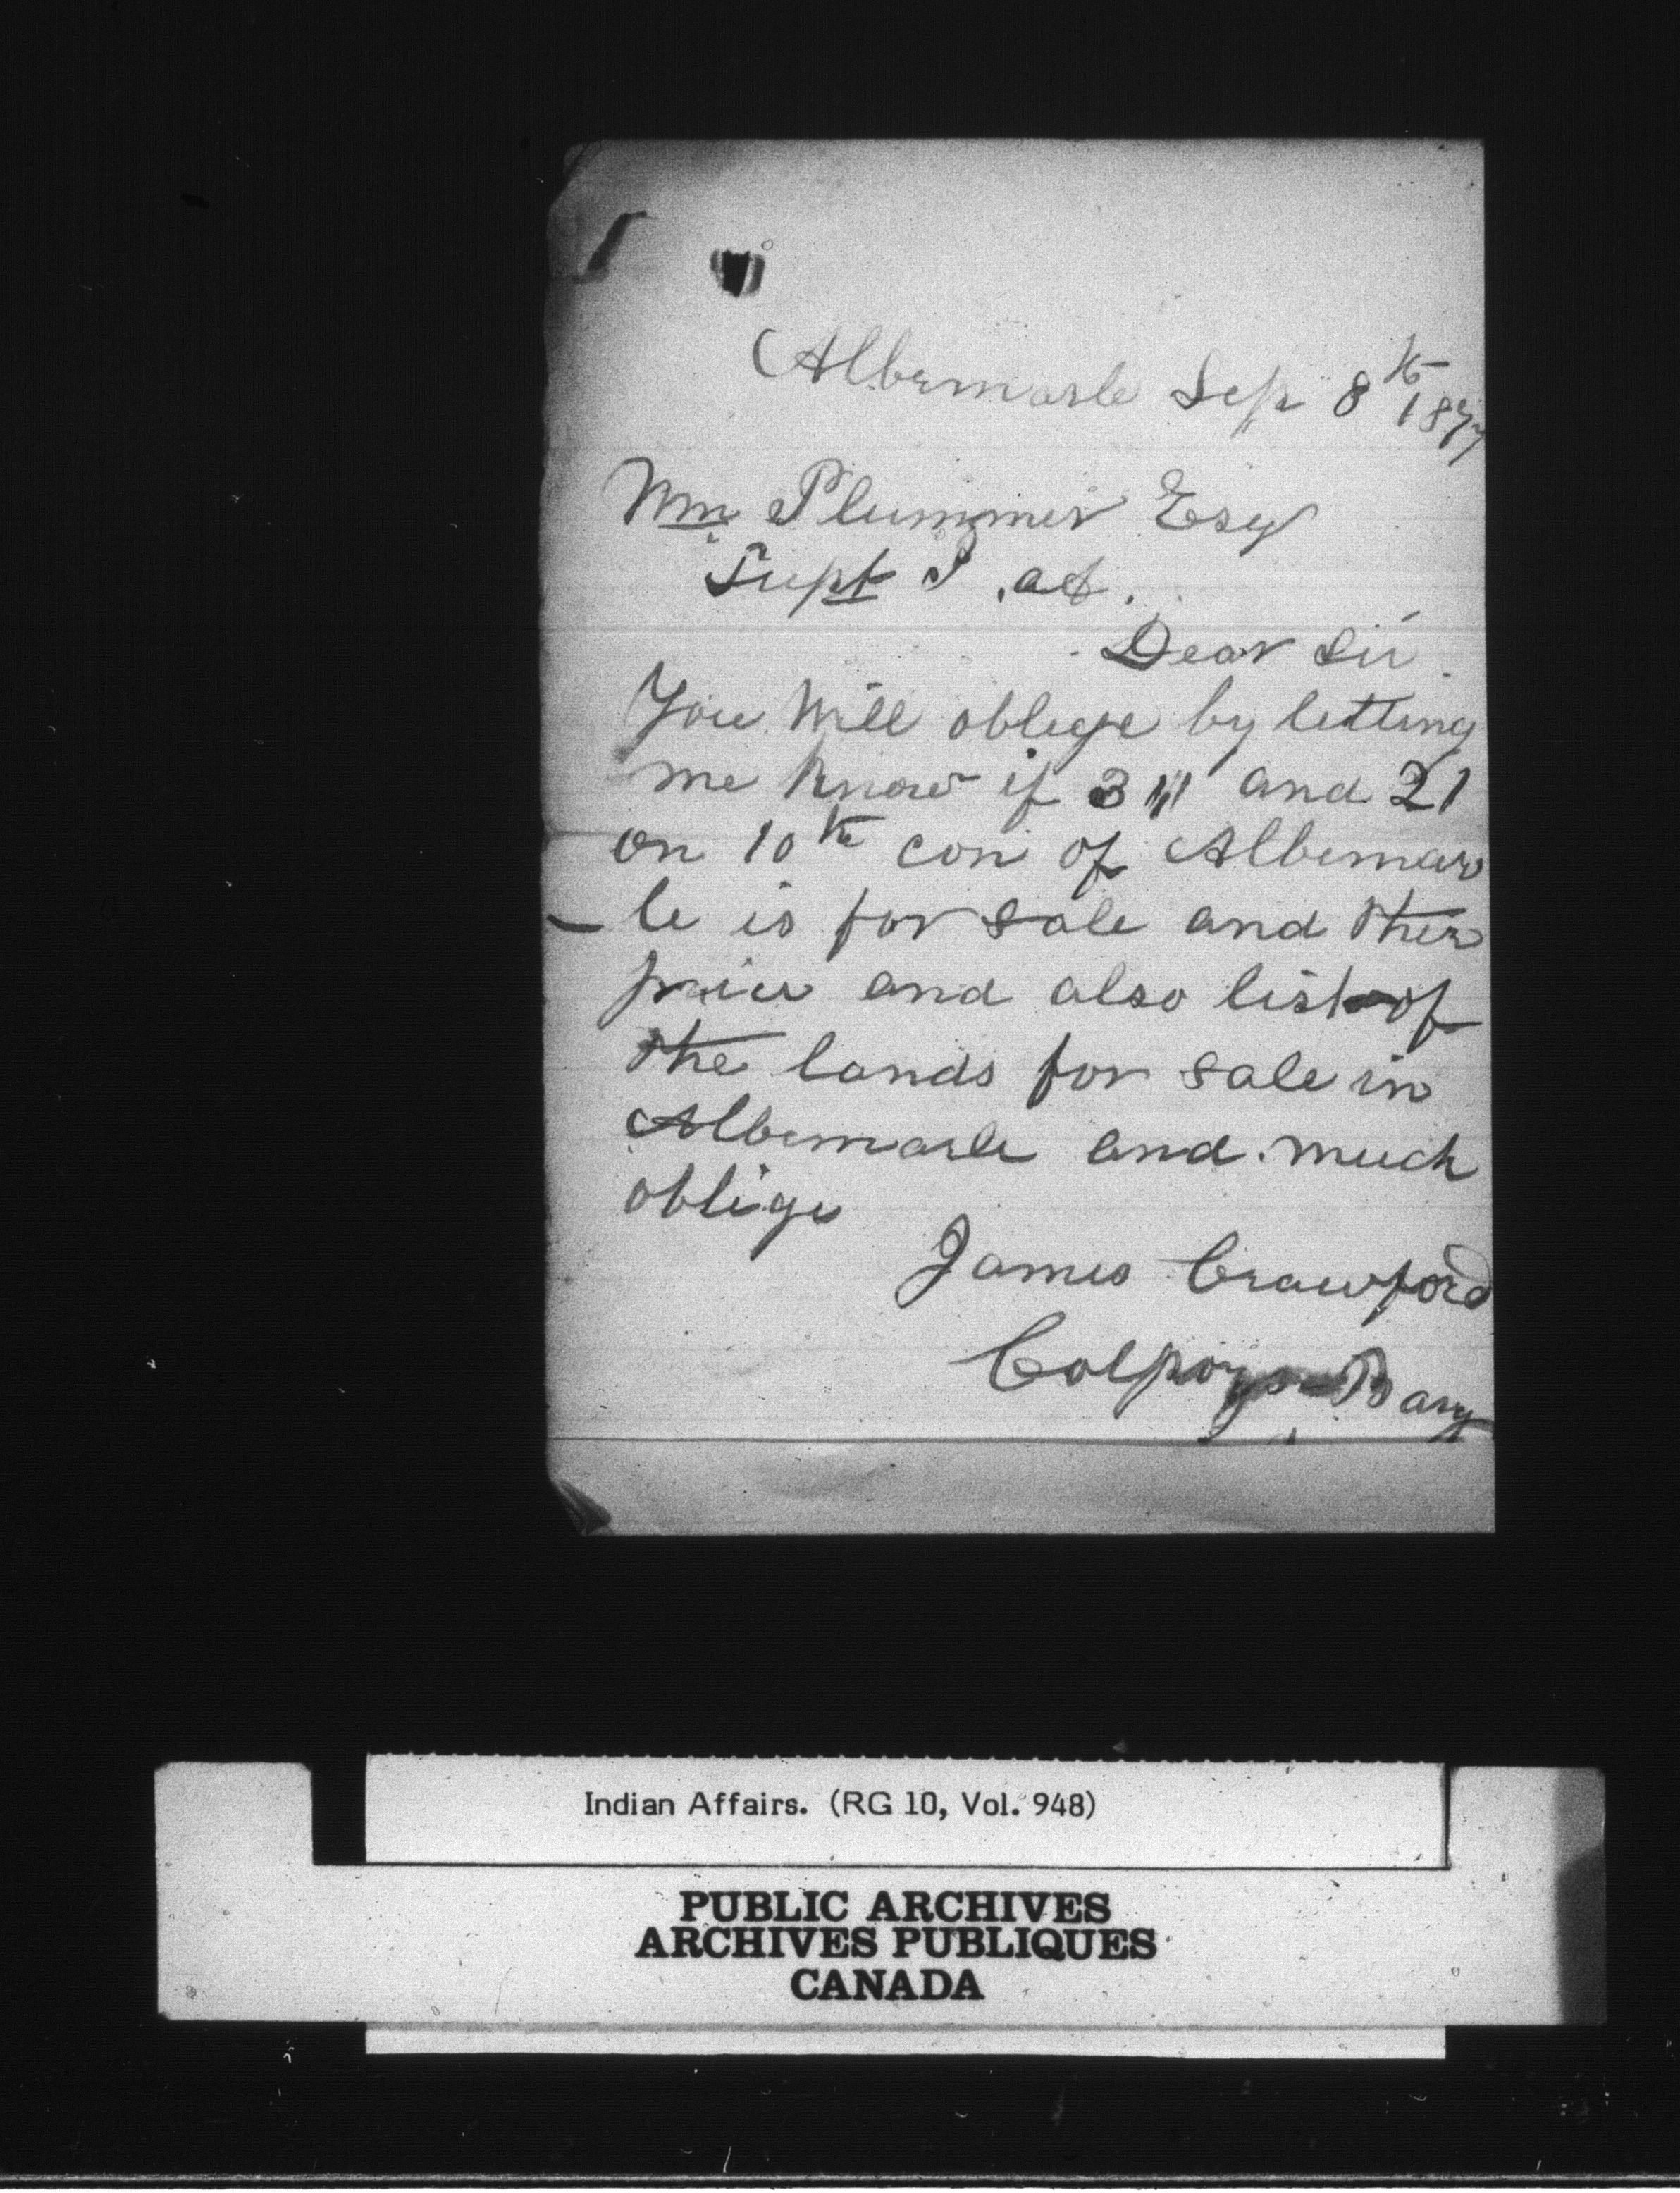 Albermarle Sep 8th 1877
Wm Plummer Esq
Supt I. af.
Dear Sir
You Will oblege by letting
me Know if and 21
on 10th con of Albemar
le is for sale and ther
price and also list of
the lands for sale in
Albemarle and much
oblige
James Crawford
Colpoys Bay
Indian Affairs. (RG 10, Vol. 948)
PUBLIC ARCHIVES
ARCHIVES PUBLIQUES
CANADA